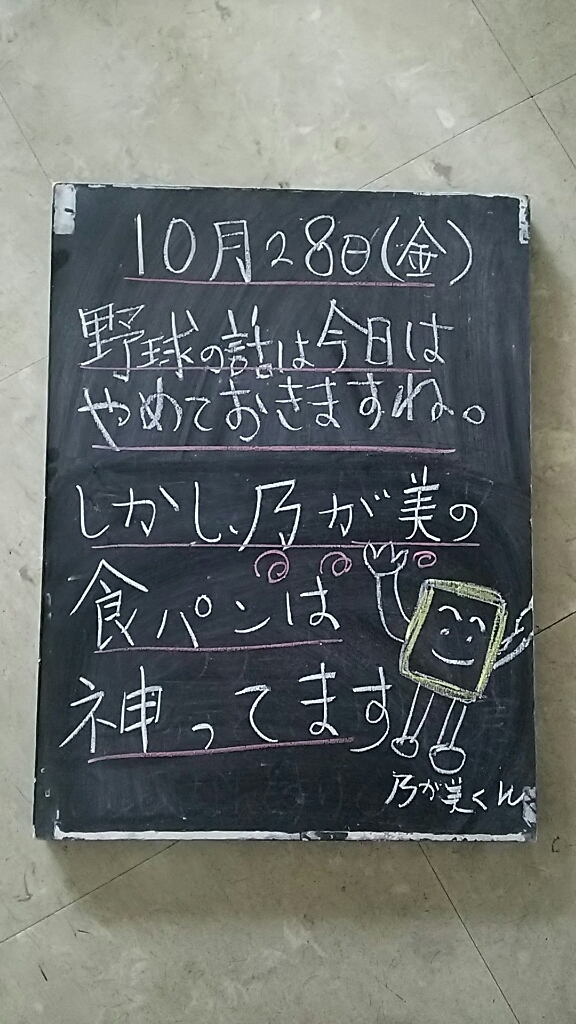 10月28日(金)
野球の話は今日は
やめておきますね。
しかし、乃が美の
食パンは
神ってます
乃が美くん